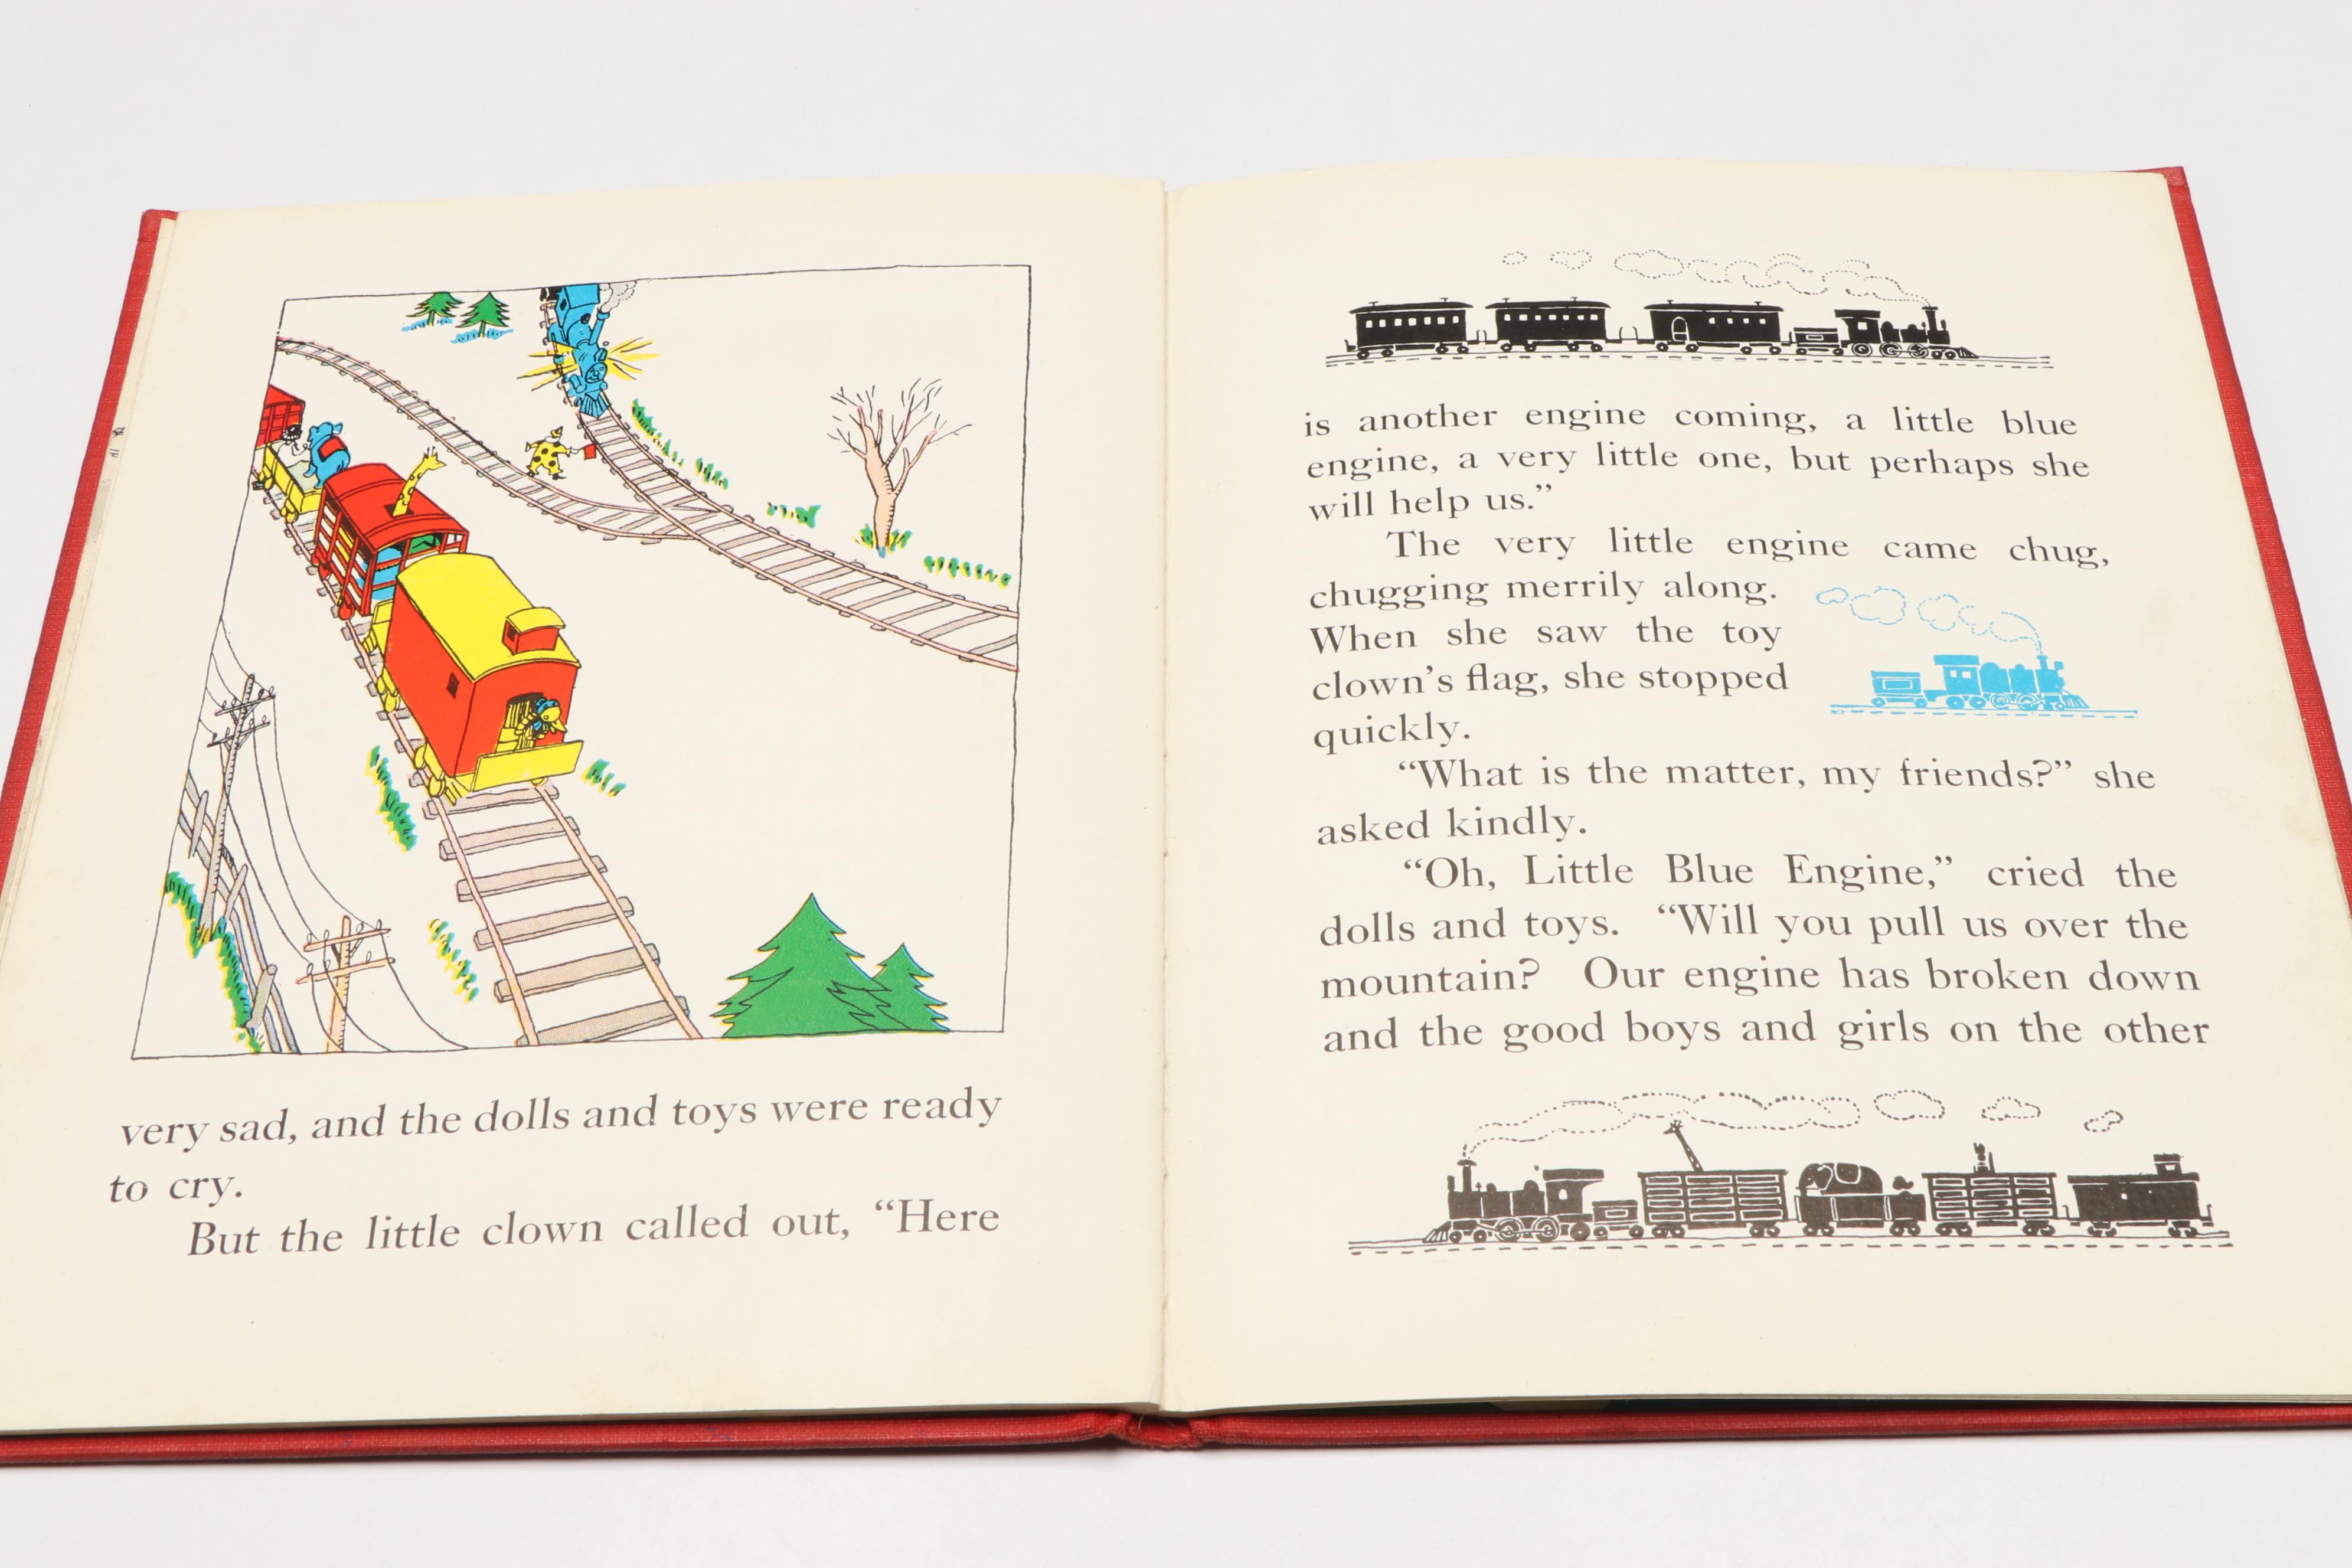 very sad, and the dolls and toys were ready
to cry.
But the little clown called out, “Here
is another engine coming, a little blue
engine, a very little one, but perhaps she
will help us.”
The very little engine came chug,
chugging merrily along.
When she saw the toy
clown’s flag, she stopped
quickly.
“What is the matter, my friends?” she
asked kindly.
“Oh, Little Blue Engine,” cried the
dolls and toys. “Will you pull us over the
mountain? Our engine has broken down
and the good boys and girls on the other